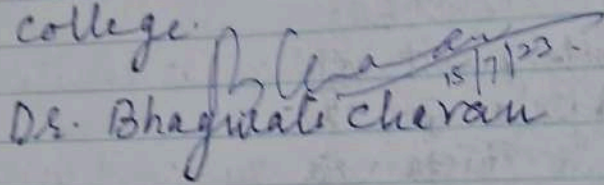 college.
15/7/23.
Dr. Bhagwati Charan